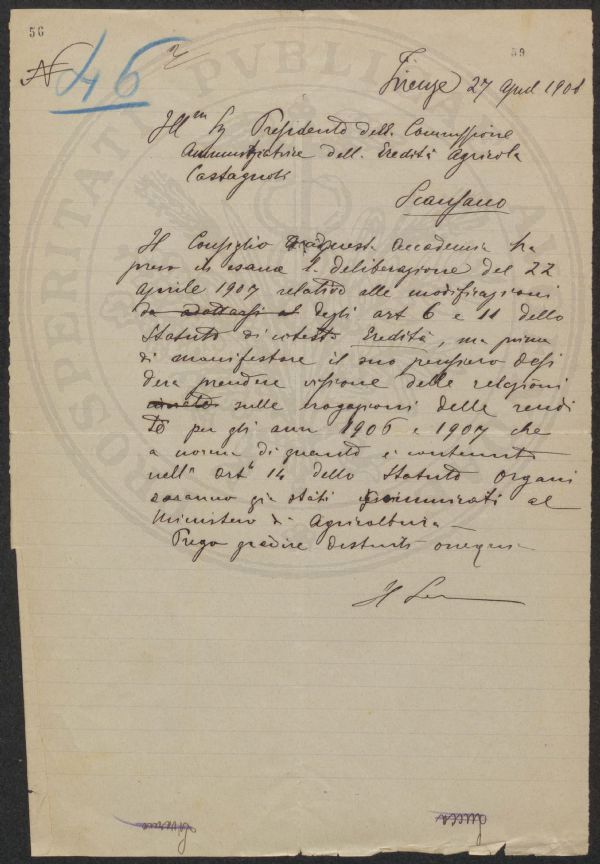 56
59
N 46
Firenze 27 April 1908
Ill.m Sg Presidente della Commissione
Amministratrice dell. Eredità Agricola
Castagnoli
Scansano
Il Consiglio di questa Accademia ha
preso in esame la deliberazione del 22
Aprile 1907 relativa alle modificazioni
da adottarsi degli art 6 e 11 dello
Statuto di cotesta Eredità, ma prima
di manifestare il suo pensiero desi
dera prendere visione delle relazioni
sulle erogazioni delle rendi
te per gli anni 1906 e 1907 che
a norma di quanto è contenuto
nell' artº 14 dello Statuto Organi
saranno già stati comunicati al
Ministero di Agricoltura
Prego gradire distinti ossequi
Il
PROSPERITATI PVBLICAE AV